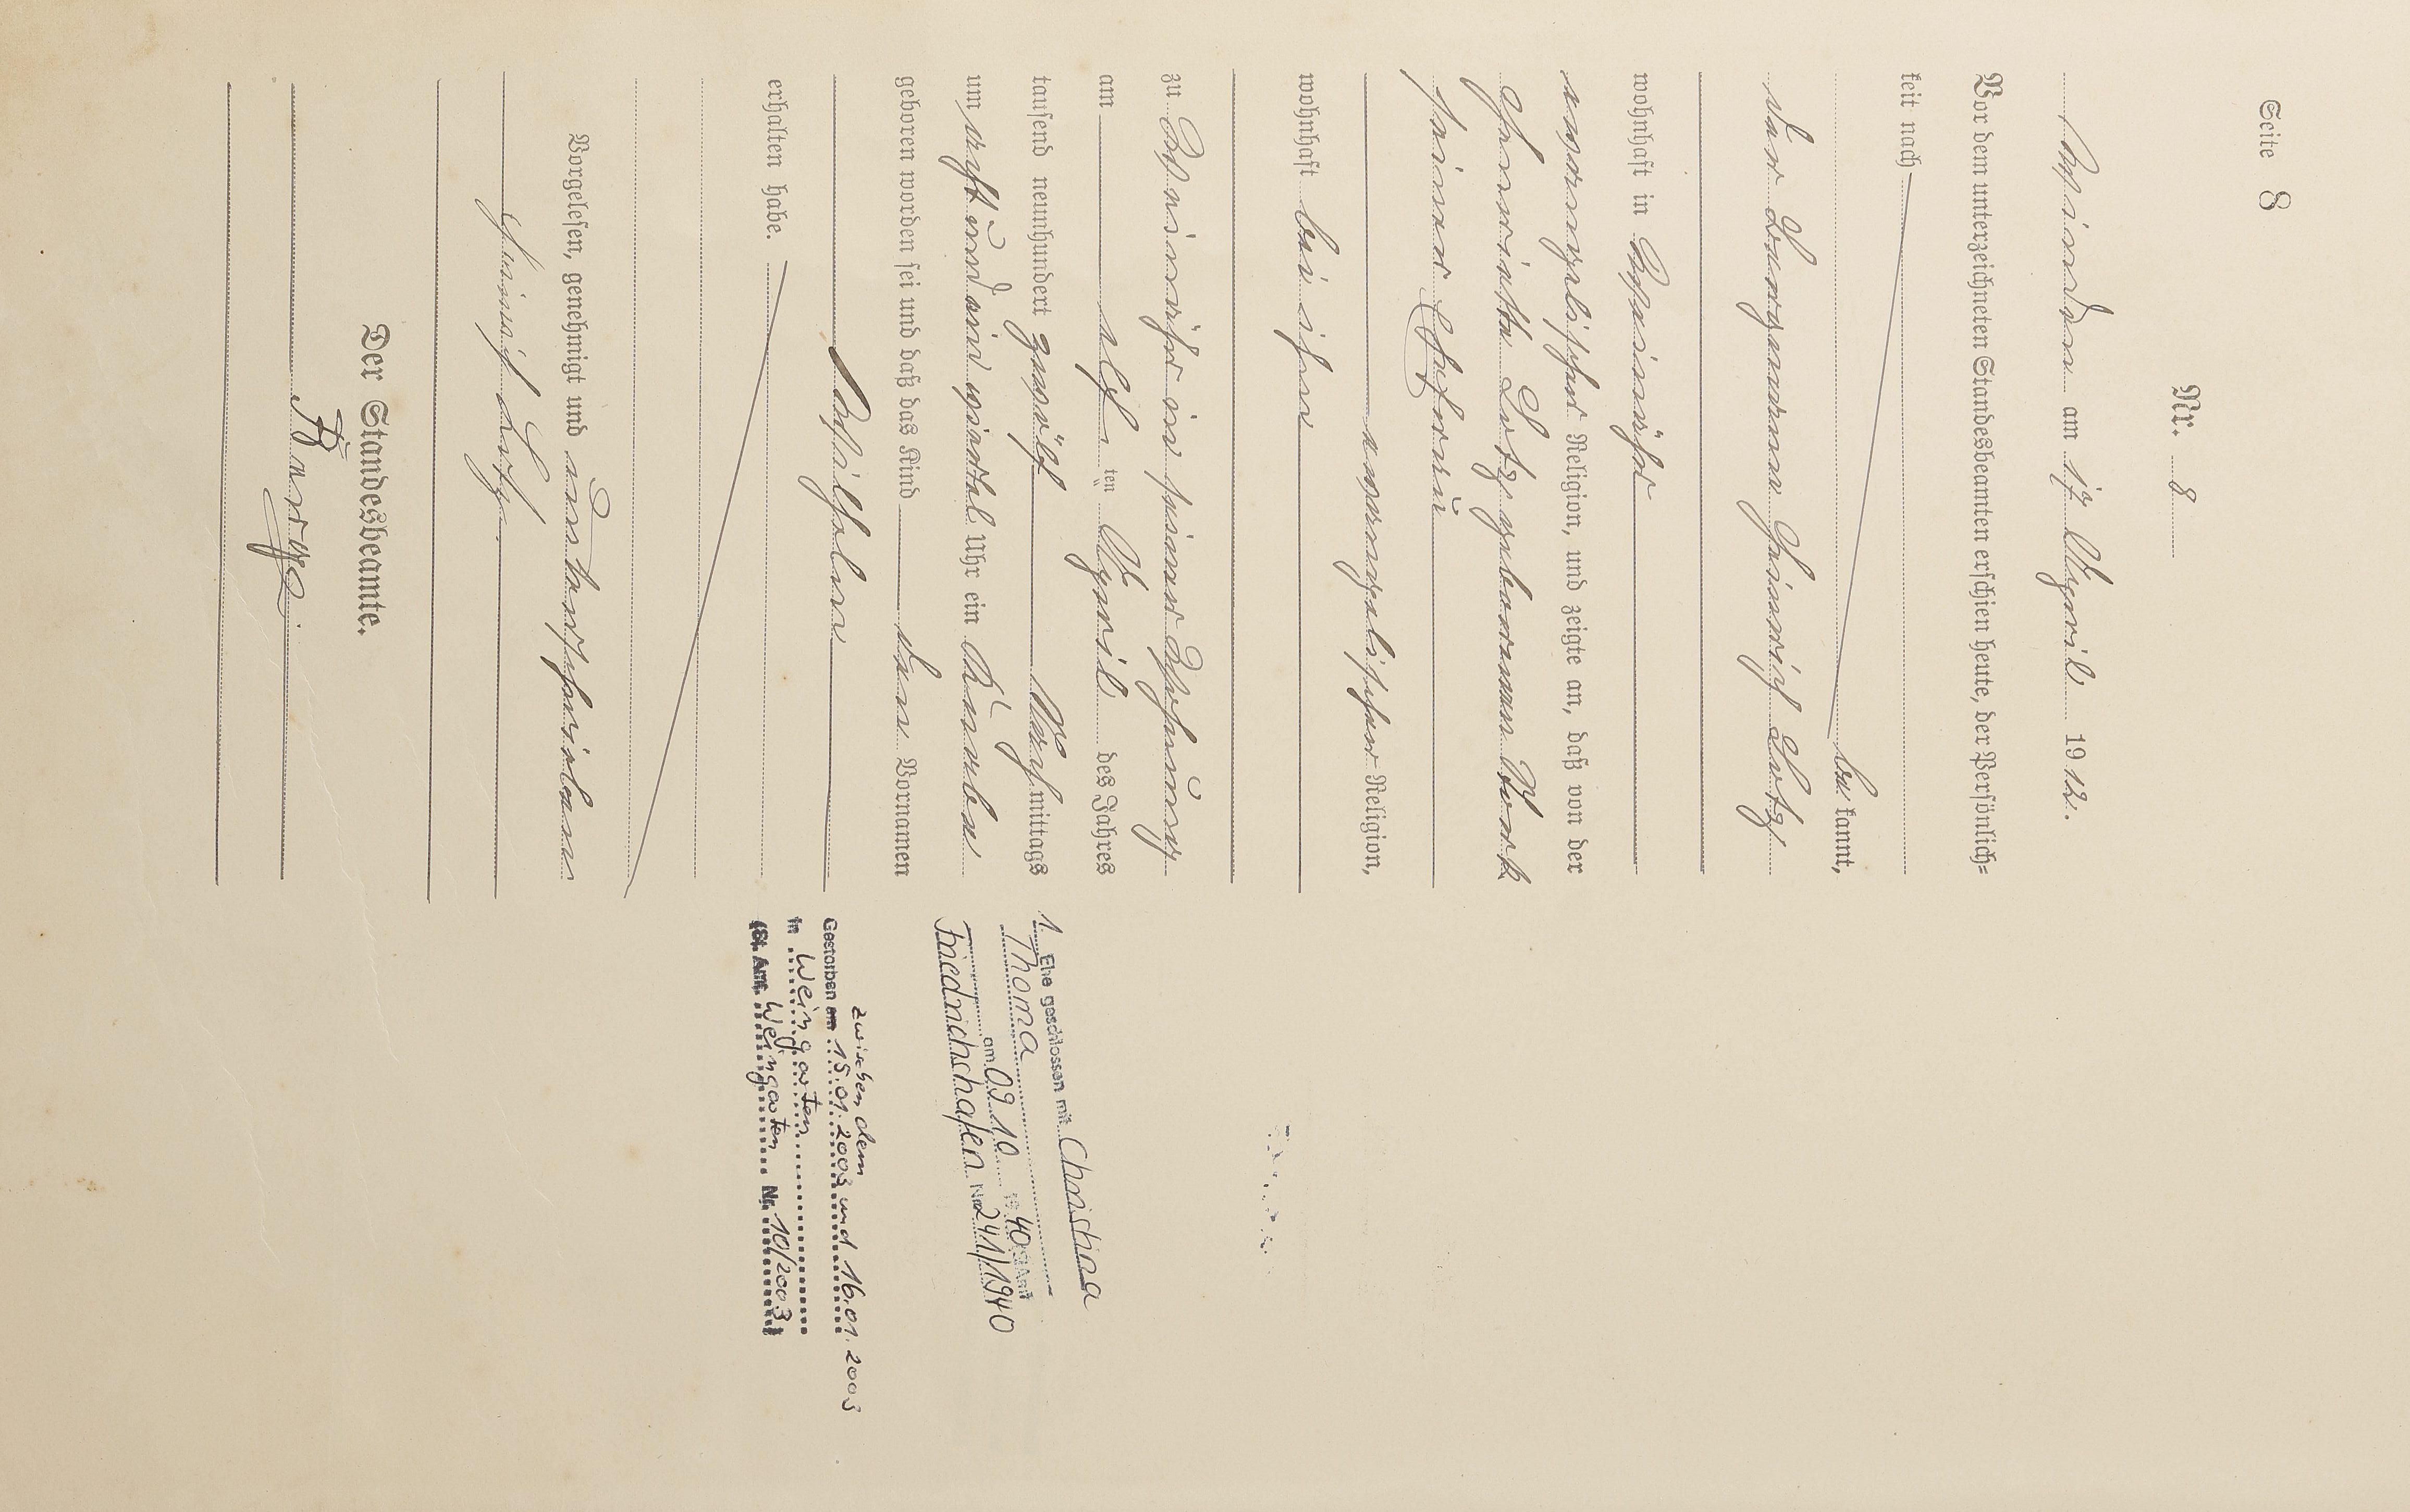 Seite 8
Nr. 8
am 17 April 1912.
Vor dem unterzeichneten Standesbeamten erschien heute, der Persönlich-
keit nach
be kannt,
der Bergmann Heinrich Lotz
wohnhaft in
evangelischer Religion, und zeigte an, daß von der
Henriette Lotz geborenen Bork
seiner Ehefrau
evangelischer Religion,
wohnhaft bei ihm
zu in seiner Wohnung
am elf ten April des Jahres
tausend neunhundert zwölf Nach mittags
um acht und ein viertel Uhr ein Knabe
geboren worden sei und daß das Kind den Vornamen
Wilhelm
erhalten habe.
Vorgelesen, genehmigt und unterschrieben
Heinrich Lotz.
Der Standesbeamte.
1. Ehe geschlossen mit Christina
Thoma
am 09.10. 1940 St.Amt
Friedrichshafen Nr. 241/1940
zwischen dem
Gestorben am 15.01.2003 und 16.01.2003
in Weingarten
(St. Amt Weingarten Nr. 10/2003)